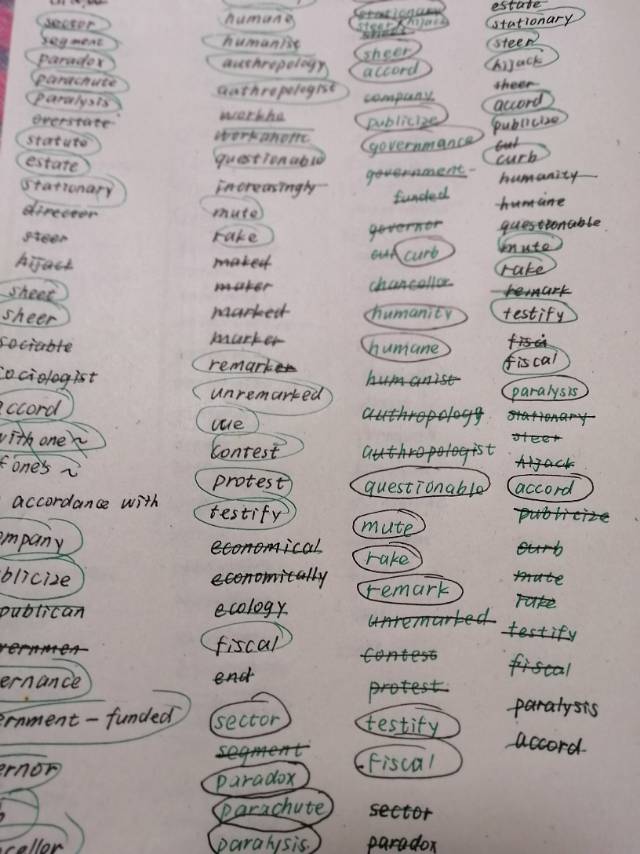 sector
segment
paradox
parachute
paralysis
overstate
statute
estate
stationary
director
steer
hijack
sheet
sheer
sociable
sociologist
accord
with one ~
f one's ~
accordance with
ompany
blicize
publican
vernmen
ernance
ernment-funded
ernor
cellor
humane
humanist
authropology
authropologist
workaholic
questionable
increasingly
mute
rake
maked
maker
marked
marker
remarker
unremarked
cue
contest
protest
testify
economical
economically
ecology
fiscal
end
sector
segment
paradox
parachute
paralysis
stationary
steer hijack
sheer
accord
company
publicize
governmance
government-
funded
governor
cut curb
chancellor
humanity
humane
humanist
authropology
authropologist
questionable
mute
rake
remark
unremarked
contest
protest
testify
fiscal
sector
paradox
estate
stationary
steer
hijack
sheer
accord
publicize
cut
curb
humanity
humane
questionable
mute
rake
remark
testify
fisci
fiscal
paralysis
stationary
steer
hijack
accord
publicize
curb
mute
rake
testify
fiscal
paralysis
accord